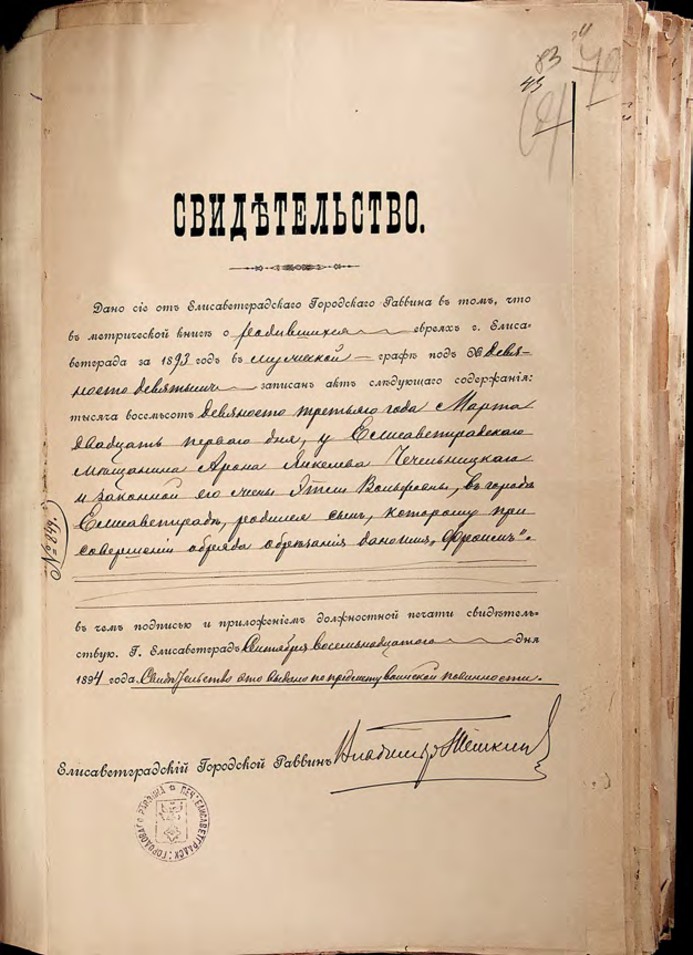 83
43
СВИДѢТЕЛЬСТВО.
Дано сіе отъ Елисаветградскаго Городскаго Раввина въ томъ, что
въ метрической книгѣ о родившихся евреяхъ г. Елиса-
ветграда за 1893 годъ въ мужеской графѣ подъ № девя-
носто девятымъ записанъ актъ слѣдующаго содержанія:
тысяча восемьсотъ девяносто третьяго года Марта
двадцать перваго дня, у Елисаветградскаго
мѣщанина Арона Янкелева Чечельницкаго
и законной его жены Вольфовны, въ городѣ
Елисаветградѣ, родился сынъ, которому при
совершеніи обряда обрѣзанія дано имя „Фроимъ“.
№ 849.
въ чемъ подписью и приложеніемъ должностной печати свидѣтель-
ствую. Г. Елисаветградъ Сентября восемнадцатаго дня
1894 года. Свидѣтельство это выдано по предмету воинской повинности.
Елисаветградскій Городской Раввинъ Владимиръ Тёшкинъ
ПЕЧ. ЕЛИСАВЕТГРАДСК: ГОРОДОВАГО РАВВИНА